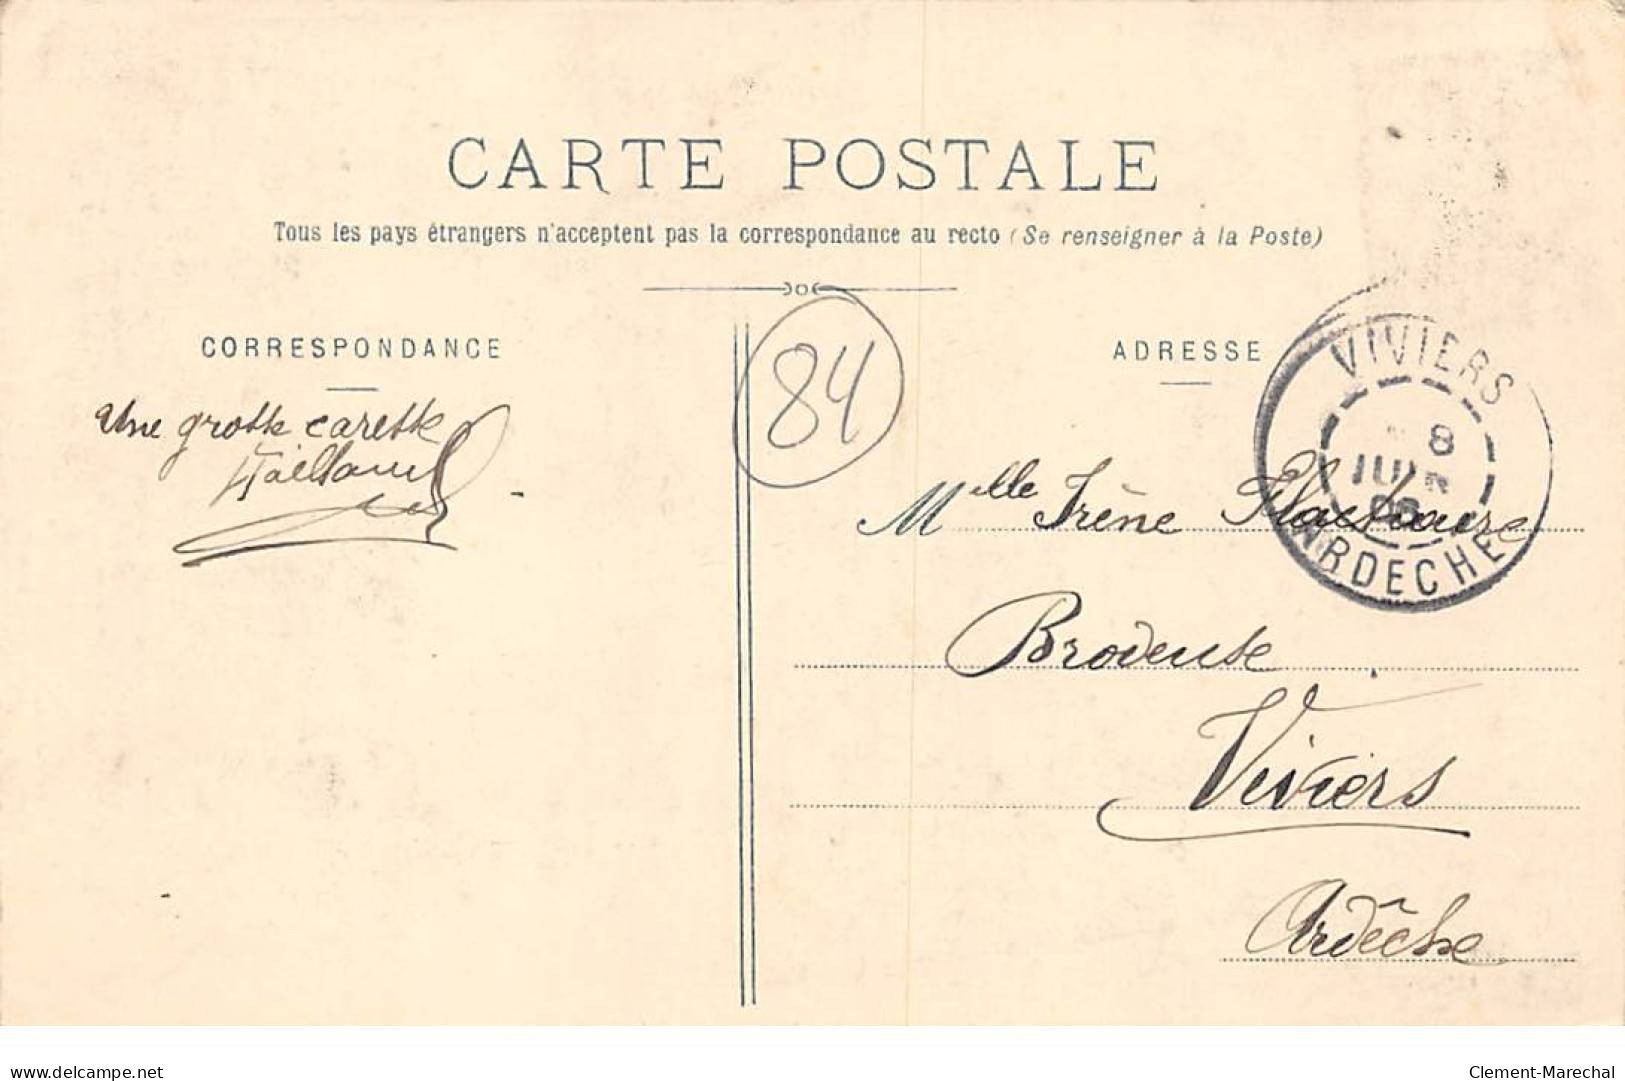 CARTE POSTALE
Tous les pays étrangers n'acceptent pas la correspondance au recto (Se renseigner à la Poste)
CORRESPONDANCE
Une grosse caresse
84
ADRESSE
VIVIERS
8
ARDECHE
Melle Irène
Brodeuse
Viviers
Ardêche
Clement-Marechal